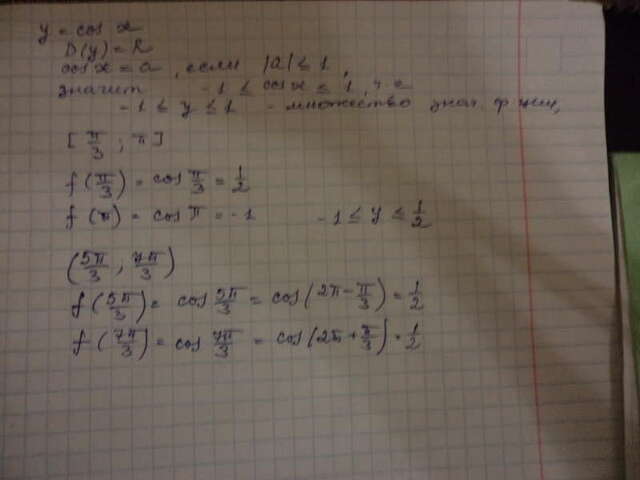 y = cos x
D(y) = R
cos x = a, если |a| ≤ 1,
значит -1 ≤ cos x ≤ 1, т.е.
-1 ≤ y ≤ 1 - множество знач. ф-ции,
[π/3; π]
f(π/3) = cos π/3 = 1/2
f(π) = cos π = -1 -1 ≤ y ≤ 1/2
(5π/3; 7π/3)
f(5π/3) = cos 5π/3 = cos(2π - π/3) = 1/2
f(7π/3) = cos 7π/3 = cos(2π + π/3) = 1/2